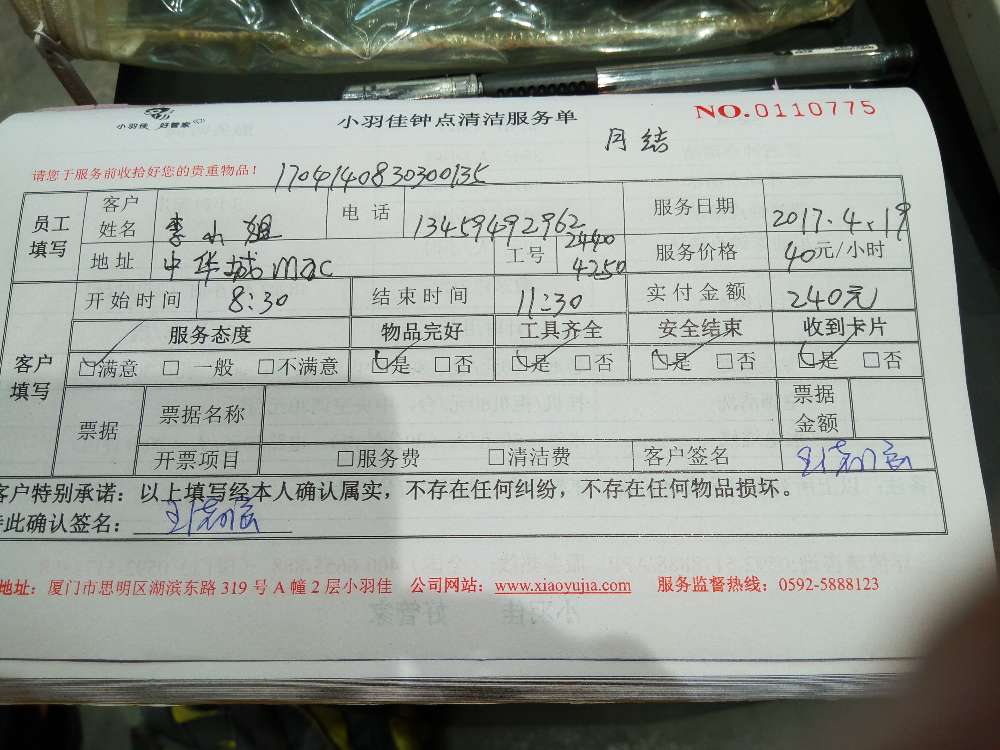 小羽佳 好管家
小羽佳钟点清洁服务单
NO.0110775
月结
请您于服务前收拾好您的贵重物品!
1704140830300135
员工填写 客户姓名 李小姐 电话 13459492962 服务日期 2017.4.19
地址 中华城mac 工号 2440 4250 服务价格 40元/小时
客户填写 开始时间 8:30 结束时间 11:30 实付金额 240元
服务态度 物品完好 工具齐全 安全结束 收到卡片
☑满意 □ 一般 □不满意 ☑是 □否 ☑是 □否 ☑是 □否 ☑是 □否
票据 票据名称 票据金额
开票项目 □服务费 □清洁费 客户签名
客户特别承诺：以上填写经本人确认属实，不存在任何纠纷，不存在任何物品损坏。
特此确认签名：
地址：厦门市思明区湖滨东路 319 号 A 幢 2 层小羽佳 公司网站：www.xiaoyujia.com 服务监督热线：0592-5888123